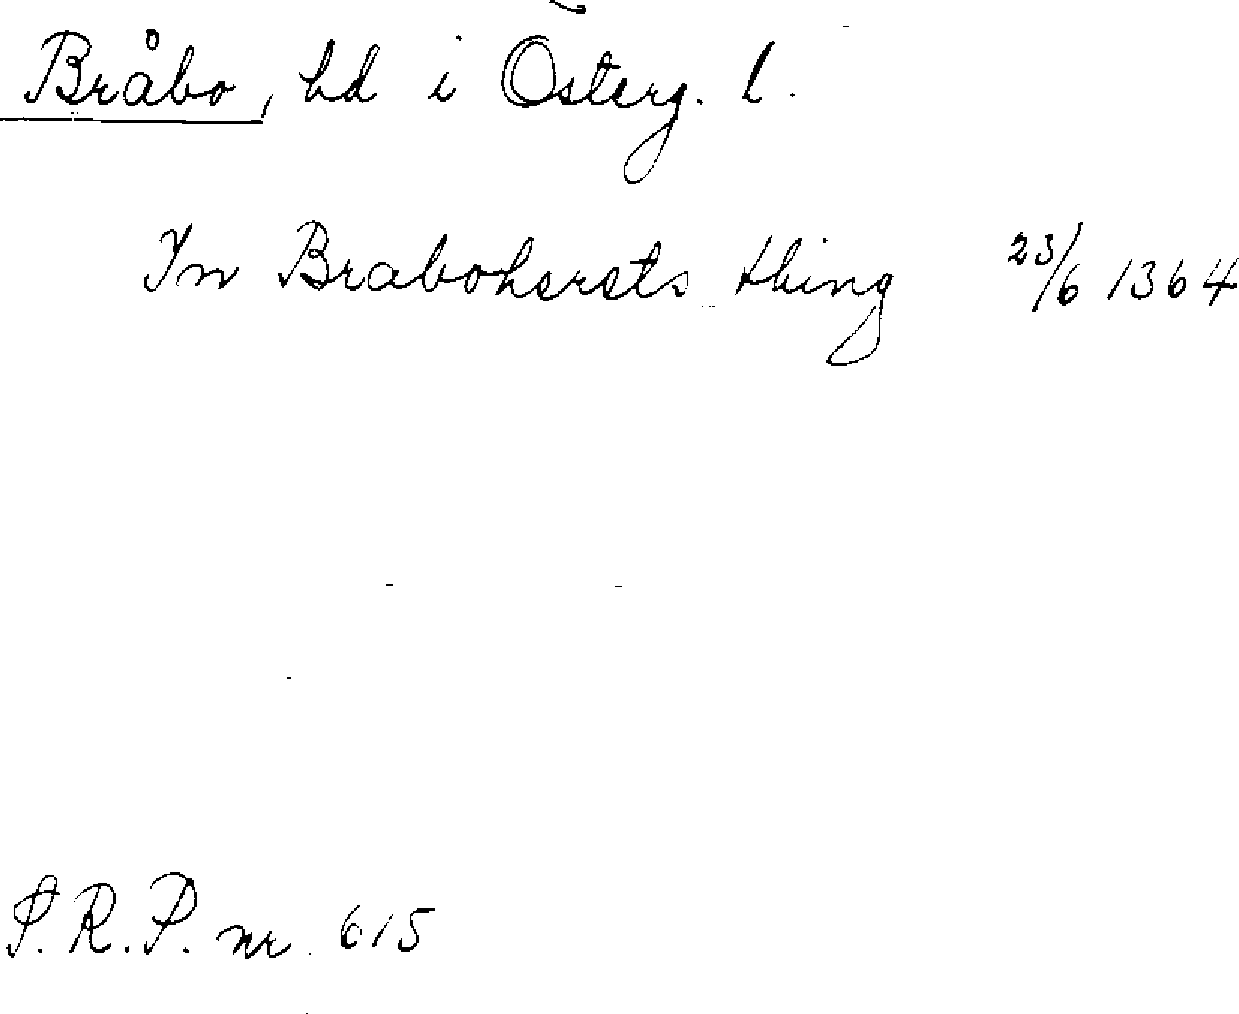 Bråbo, hd i Österg. l.
In Braboherets thing 23/6 1364
S.R.P. nr. 615